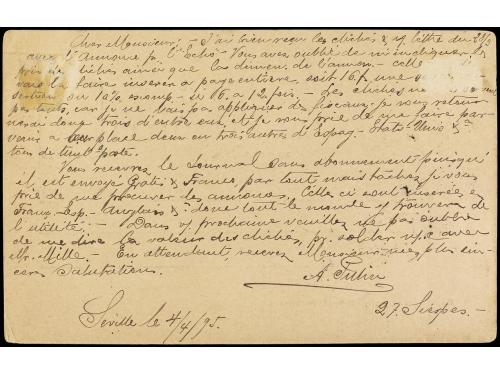 Cher Monsieur: - J'ai bien reçu les clichés & v/ lettre du 28/3
avec l'annonce p. l'Echo - Vous avez oublié de m'indiquer les
prix des clichés ainsi que les dimens. de l'annon. - celle
dois la faire inserer à page entière, soit 16 f. une
ou 10% escompt. si 6 à 12 fois. - Les clichés ne
pas tous, car je ne vais pas appliquer des fiscaux. je vous retour
nerai donc trois d'entre eux, et je vous prie de me faire par-
venir à leur place deux ou trois autres d'Espag. - Etats-Unis &a
tous de timb. poste.
Vous recevrez le Journal sans abonnement puisqu'
il est envoyé Gratis & Franco, par tout mais tachez je vous
prie de me procurer des annonces. Celles ci sont inserées en
Franç. - Esp. - Anglais & donc tout le monde y trouvera de
l'utilité. - Dans v/ prochaine veuillez ne pas oublier
de me dire la valeur des clichés, pr. solder v/ c avec
Mr. Mille. - En attendant, recevez Monsieur mes plus sin-
ceres Salutations.
A.
Seville le 4/4/95.
27. Sierpes -